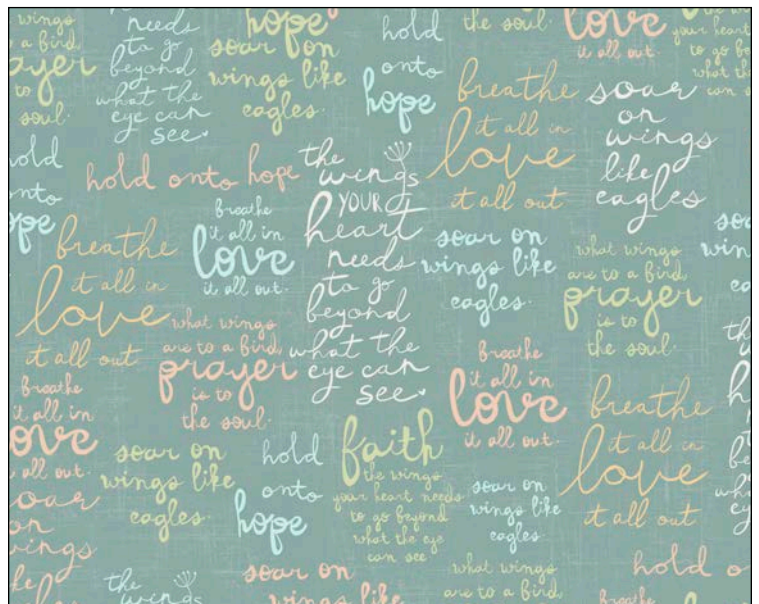 wings
a bird,
ayer
to
soul.
needs
to go
beyond
what the
eye can
see
hope
soar on
wings like
eagles.
hold
onto
hope
the soul.
love
it all out.
your heart
to go be
what th
can s
breathe
it all in
love
it all out
soar
on
wings
like
eagles
old
nto
pe
hold onto hope
the
wings
YOUR
heart
needs
to go
beyond
what the
eye can
see
breathe
it all in
love
it all out.
breathe
it all in
love
it all out
soar on
wings like
eagles.
what wings
are to a bird,
prayer
is to
the soul.
soa
win
ea
what wings
are to a bird,
prayer
is to
the soul.
breathe
it all in
love
it all out.
breathe
it all in
love
it all out
breathe
it all in
ove
all out.
soar on
wings like
eagles.
hold
onto
hope
faith
the wings
your heart needs
to go beyond
what the eye
can see
soar on
wings like
eagles.
oar
on
wings
ke
the
wings
soar on
wings like
what wings
are to a bird,
hold o
breathe
it all in